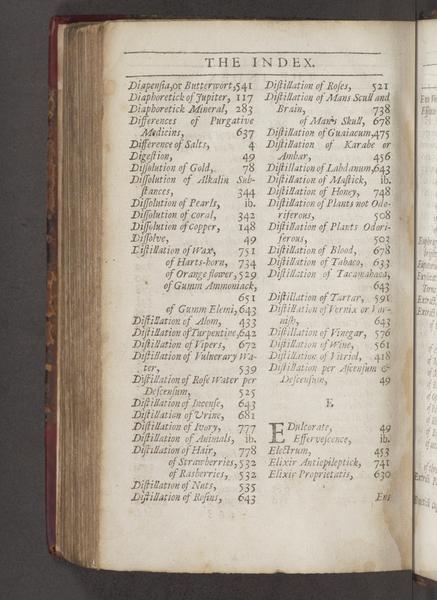 THE INDEX.
Diapensia, or Butterwort, 541
Diaphoretick of Jupiter, 117
Diaphoretick Mineral, 283
Differences of Purgative
Medicins, 637
Difference of Salts, 4
Digestion, 49
Dissolution of Gold, 78
Dissolution of Alkalin Sub-
stances, 344
Dissolution of Pearls, ib.
Dissolution of Coral, 342
Dissolution of Copper, 148
Dissolve, 49
Distillation of Wax, 751
of Harts-horn, 734
of Orange flower, 529
of Gumm Ammoniack,
651
of Gumm Elemi, 643
Distillation of Alom, 433
Distillation of Turpentine, 642
Distillation of Vipers, 672
Distillation of Vulnerary Wa-
ter, 539
Distillation of Rose Water per
Descensum, 525
Distillation of Incense, 643
Distillation of Urine, 681
Distillation of Ivory, 777
Distillation of Animals, ib.
Distillation of Hair, 778
of Strawberries, 532
of Rasberries, 532
Distillation of Nuts, 535
Distillation of Rosins, 643
Distillation of Roses, 521
Distillation of Mans Scull and
Brain, 738
of Mans Skull, 678
Distillation of Guaiacum, 475
Distillation of Karabe or
Ambar, 456
Distillation of Labdanum, 643
Distillation of Mastick, ib.
Distillation of Honey, 748
Distillation of Plants not Odo-
riferous, 508
Distillation of Plants Odori-
ferous, 502
Distillation of Blood, 678
Distillation of Tabaco, 633
Distillation of Tacamahaca,
643
Distillation of Tartar, 591
Distillation of Vernix or Var-
nish, 643
Distillation of Vinegar, 576
Distillation of Wine, 561
Distillation of Vitriol, 418
Distillation per Ascensum &
Descensum, 49
E.
EDulcorate, 49
Effervescence, ib.
Electrum, 453
Elixir Antiepileptick, 741
Elixir Proprietatis, 630
Ens